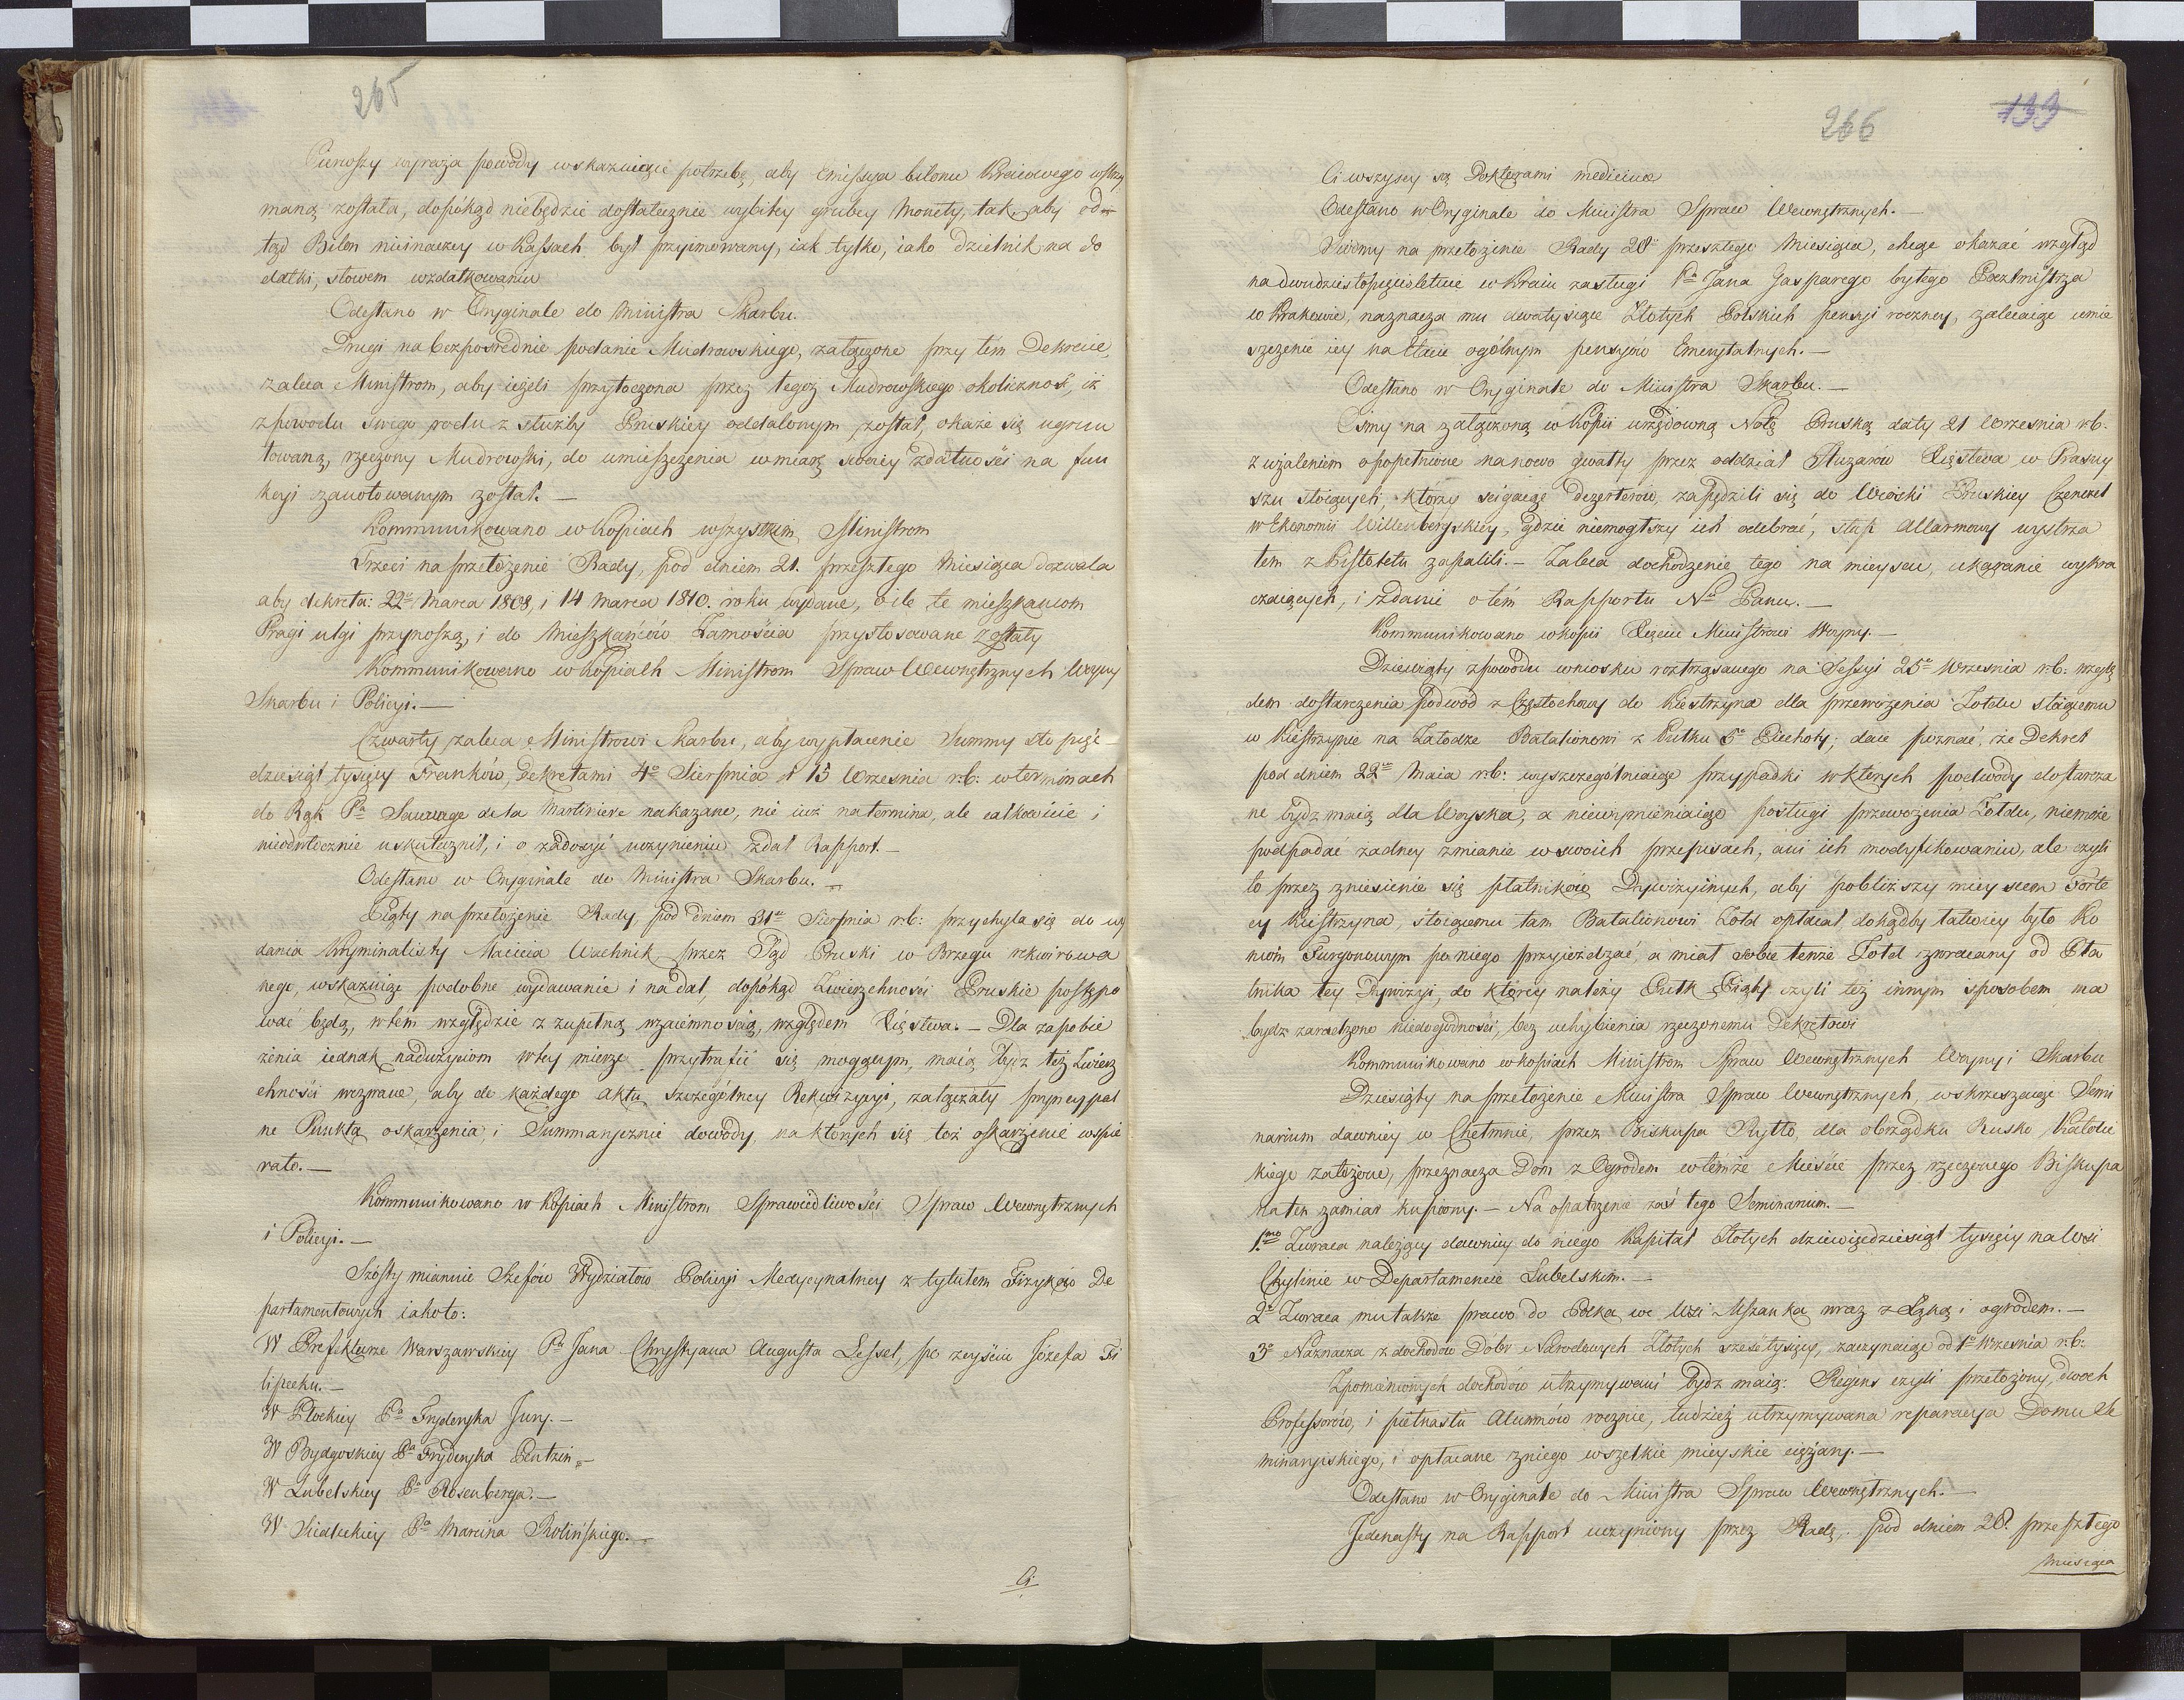 265
Pierwszy wyraża powody wskazuiące potrzebę, aby Emissya bilonu Kraiowego wstrzy
maną została, dopókąd niebędzie dostatecznie wybitey grubey Monety, tak, aby od
tąd Bilon nieinaczey w Kassach był przyimowany, iak tylko, iako dzielnik na do
datki, słowem wzdatkowaniu
Odesłano w Oryginale do Ministra Skarbu.
Drugi na bezpośrednie podanie Mudrowskiego, załączone przy tém Dekrecie,
zaleca Ministrom, aby ieżeli przytoczona przez tegoż Mudrowskiego okoliczność, iż
z powodu swego rodu z służby Pruskiey oddalonym został, okaże się ugrun
towaną, rzeczony Mudrowski, do umieszczenia w miarę swoiey zdatności na fun
kcyi zanotowanym został. —
Kommunikowano w Kopiach wszystkim Ministrom
Trzeci na przełożenie Rady, pod dniem 21. przeszłego Miesiąca dozwala
aby dekreta: 22º Marca 1808, i 14 Marca 1810. roku wydane, o ile te mieszkańcom
Pragi ulgi przynoszą, i do Mieszkańców Zamościa przystosowane zostały
Kommunikowano w Kopiach Ministrom Spraw Wewnętrznych Woyny
Skarbu i Policyi. —
Czwarty zaleca Ministrowi Skarbu, aby wypłacenie Summy sto pięć
dziesiąt tysięcy Franków, Dekretami 4º Sierpnia i 15 Września r.b: w terminach
do Rąk Pa Sauvage de la Martiniere nakazane, nie iuż na termina, ale całkowicie i
nieodwłocznie uskutecznił, i o zadosyć uczynieniu zdał Rapport. —
Odesłano w Oryginale do Ministra Skarbu. —
Piąty na przełożenie Rady, pod dniem 31º Sierpnia r.b: przychyla się do wy
dania Kryminalisty Macieia Wachnik przez Sąd Pruski w Brzegu rekwirowa
nego, wskazuiąc podobne wydawanie i nadal, dopókąd Zwierzchności Pruskie postępo
wać będą, w tém względzie z zupełną wzaiemnością, względem Xięstwa. — Dla zapobie
żenia iednak nadużyciom w tey mierze przytrafić się mogącym, maią bydź też Zwierz
chności wezwane, aby do każdego aktu szczególney Rekwizycyi, załączały pryncypal
ne Punkta oskarżenia, i Summarycznie dowody, na których się toż oskarżenie wspie
rało. —
Kommunikowano w Kopiach Ministrom Sprawiedliwości Spraw Wewnętrznych
i Policyi. —
Szósty mianuie Szefów Wydziałów Policyi Medycynalney z tytułem Fizyków De
partamentowych iakoto:
W Prefekturze Warszawskiey Pa Jana Chrystyana Augusta Lessel, po zeyściu Józefa Fi
lipecku. —
W Płockiey Pa Fryderyka Jury. —
W Bydgoskiey Pa Fryderyka Pentzin. —
W Lubelskiey Pa Rosenberga. —
W Siedleckiey Pa Marcina Rolińskiego. —
Ci
266
133
Ci wszyscy są Doktorami medicinæ
Odesłano w Oryginale do Ministra Spraw Wewnętrznych. —
Siódmy na przełożenie Rady 28º przeszłego Miesiąca, chcąc okazać wzgląd
na dwudziestopięcioletnie w Kraiu zasługi Pa Jana Gasparego byłego Pocztmistrza
w Krakowie, naznacza mu dwatysiące Złotych Polskich pensyi roczney, zalecaiąc umie
szczenie iey na Etacie ogólnym pensyów Emerytalnych. —
Odesłano w Oryginale do Ministra Skarbu. —
Ósmy na załączoną w Kopii urzędowną Notę Pruską daty 21 Września r.b.
z użaleniem o popełnione na nowo gwałty przez oddział Huzarów Xięstwa w Prasny
szu stoiących, którzy ścigaiąc dezerterów, zapędzili się do Wioski Pruskiey Czenczel
w Ekonomii Willenbergskiey, gdzie niemogłszy ich odebrać, słup Allarmowy wystrza
łem z Pistoletu zapalili. — Zaleca dochodzenie tego na mieyscu, ukaranie wykra
czaiących, i zdanie o tém Rapportu Nmu Panu. —
Kommunikowano w kopii Xięciu Ministrowi Woyny. —
Dziewiąty z powodu wniosku roztrząsanego na Sessyi 25º Września r.b: wzglę
dem dostarczenia podwód z Częstochowy do Kiestrzyna dla przewożenia Żołdu stoiącemu
w Kiestrzynie na Załodze Batalionowi z Pułku 5º Piechoty; daie poznać, że Dekret
pod dniem 22º Maia r.b: wyszczególniaiąc przypadki w których podwody dostarcza
ne bydź maią dla Woyska, a niewymieniaiąc posługi przewożenia Żołdu, niemoże
podpadać żadney zmianie w swoich przepisach, ani ich modyfikowaniu, ale czyli
to przez zniesienie się płatników Dywizyinych, aby pobliższy mieyscem Forte
cy Kistrzyna, stoiącemu tam Batalionowi Żołd opłacał dokądby łatwiey było Ko
niom Furgonowym po niego przyieżdżać, a miał sobie tenże Żołd zwracany od Pła
tnika tey Dywizyi, do którey należy Pułk Piąty czyli też innym sposobem ma
bydź zaradzono niedogodności, bez uchybienia rzeczonemu Dekretowi
Kommunikowano w kopiach Ministrom Spraw Wewnętrznych Woyny i Skarbu
Dziesiąty na przełożenie Ministra Spraw Wewnętrznych, wskrzeszaiąc Semi
narium dawniey w Chełmnie, przez Biskupa Ryłło, dla obrządku Rusko Katolic
kiego założone, przeznacza Dom z Ogrodem w témże Mieście przez rzeczonego Biskupa
na ten zamiar kupiony. — Na opatrzenie zaś tego Seminarium. —
1mo Zwraca należący dawniey do niego Kapitał Złotych dziewięćdziesiąt tysięcy na Wsi
Chylinie w Departamencie Lubelskim. —
2º Zwraca mu także prawo do Polka we Wsi Mszanka wraz z Łąką i ogrodem. —
3º Naznacza z dochodów Dóbr Narodowych Złotych sześć tysięcy, zaczynaiąc od 1º Września r.b:
Z pomienionych dochodów utrzymywani bydź maią: Regens czyli przełożony, dwóch
Professorów, i piętnastu Alumnów rocznie, tudzież utrzymywana reparacya Domu Se
minaryiskiego, i opłacane z niego wszelkie mieyskie ciężary. —
Odesłano w Oryginale do Ministra Spraw Wewnętrznych. —
Jedenasty na Rapport uczyniony przez Radę, pod dniem 28. przeszłego
Miesiąca